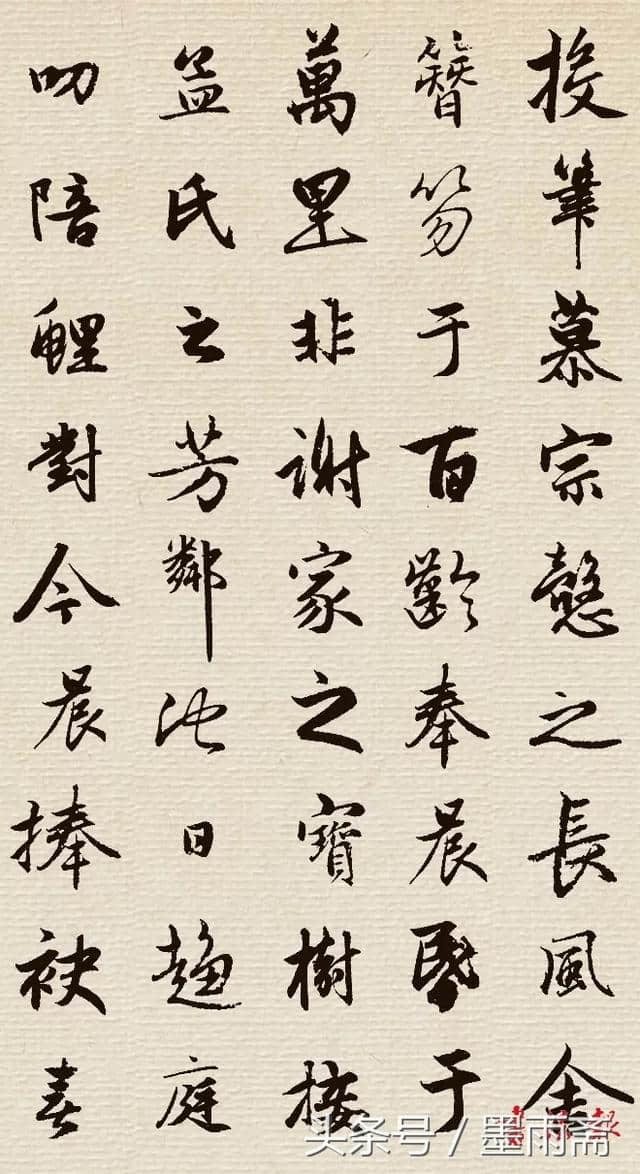 投筆慕宗愨之長風舍
簪笏于百齡奉晨昬于
萬里非謝家之寶樹接
孟氏之芳鄰他日趨庭
叨陪鯉對今晨捧袂喜
头条号 / 墨雨斋